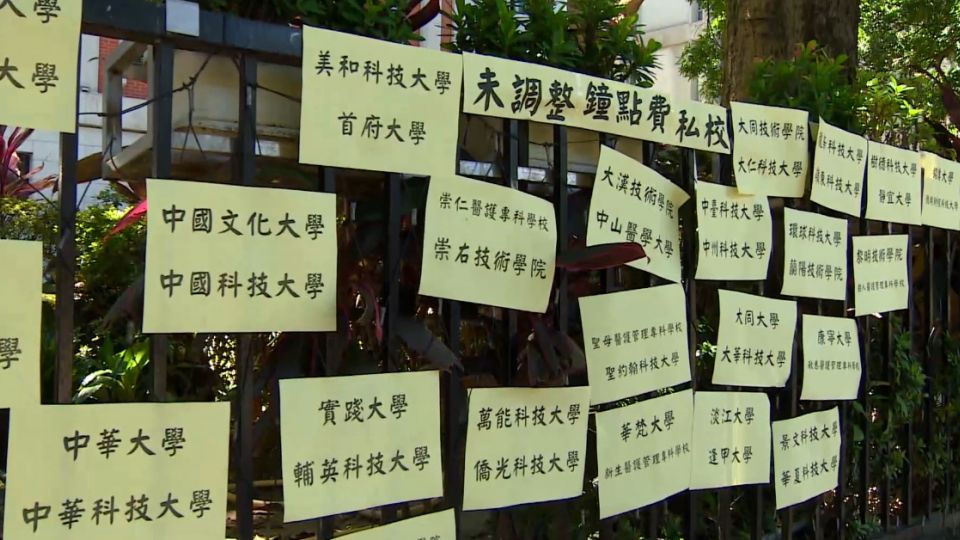 大學
大學
美和科技大學
首府大學
未調整鐘點費私校
大同技術學院
大仁科技大學
科技大學
科技大學
樹德科技大學
靜宜大學
大學
科技大學
中國文化大學
中國科技大學
崇仁醫護專科學校
崇右技術學院
大漢技術學院
中山醫學大學
中臺科技大學
中州科技大學
環球科技大學
蘭陽技術學院
黎明技術學院
醫護管理專科學校
學
聖母醫護管理專科學校
聖約翰科技大學
大同大學
大華科技大學
康寧大學
敏惠醫護管理專科學校
中華大學
中華科技大學
實踐大學
輔英科技大學
萬能科技大學
僑光科技大學
華梵大學
新生醫護管理專科學校
淡江大學
逢甲大學
景文科技大學
華夏科技大學